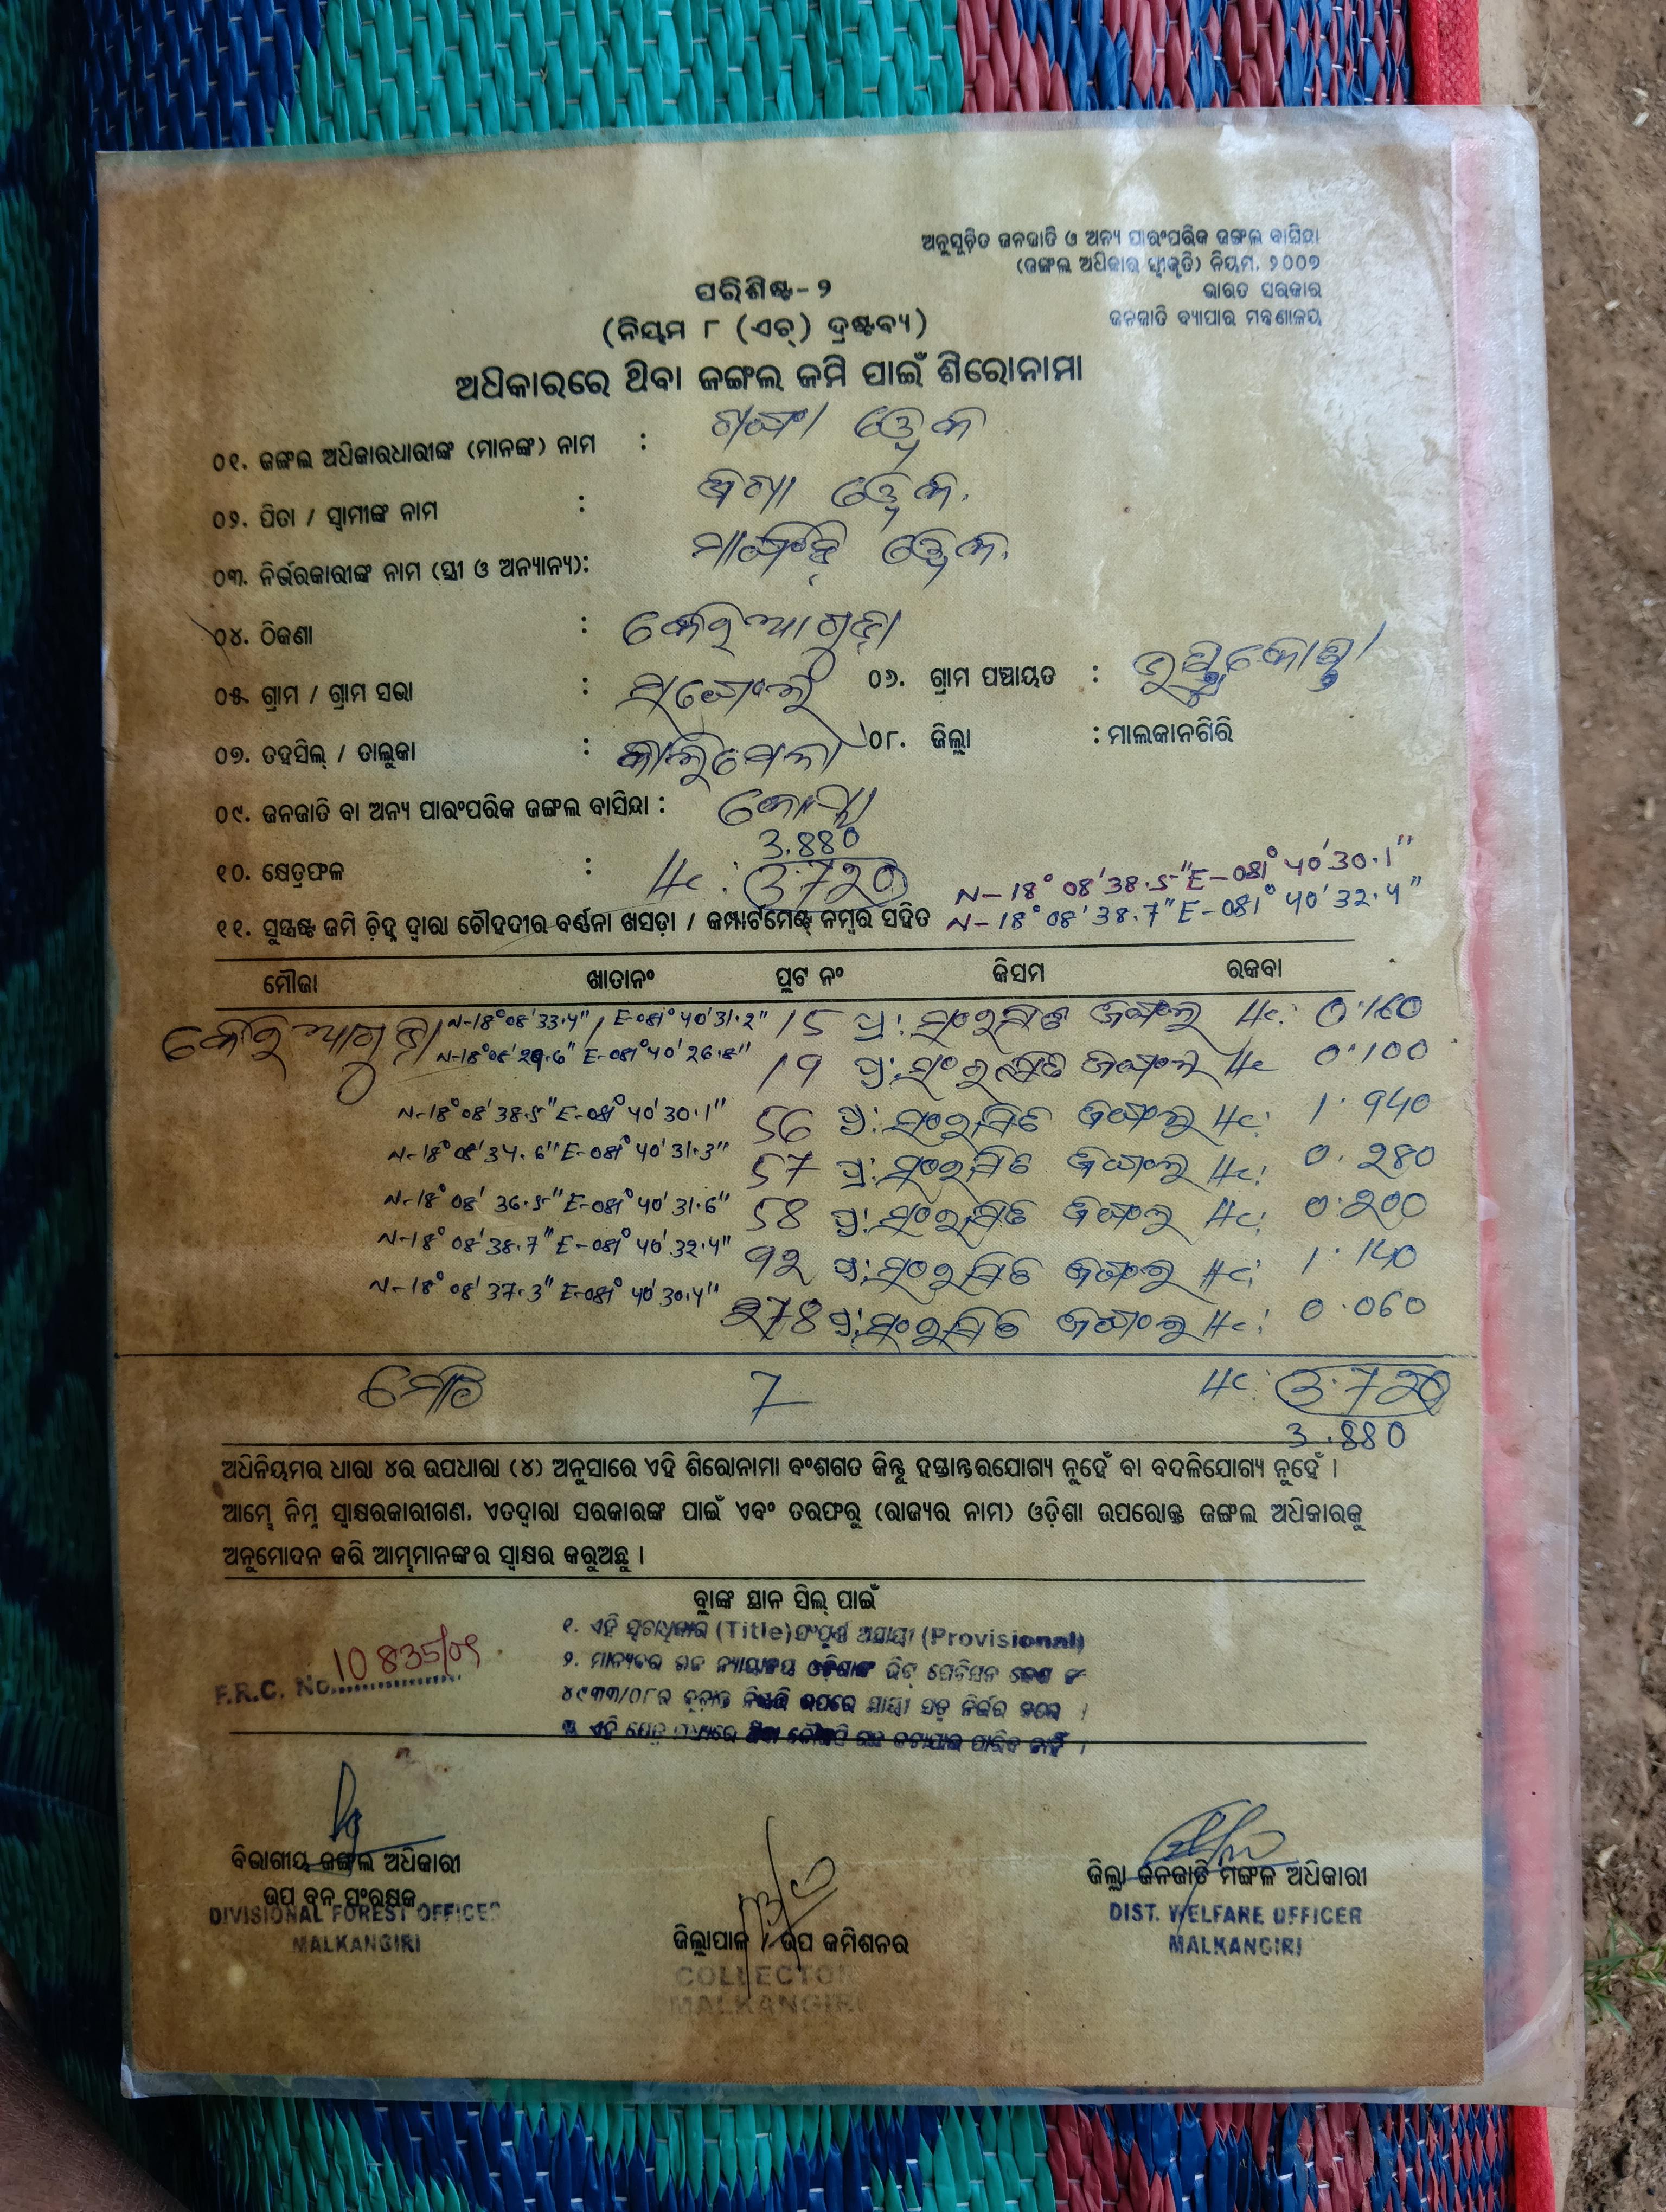 ଅନୁସୂଚିତ ଜନଜାତି ଓ ଅନ୍ୟ ପାରଂପରିକ ଜଙ୍ଗଲ ବାସିନ୍ଦା
(ଜଙ୍ଗଲ ଅଧିକାର ସ୍ୱୀକୃତି) ନିୟମ, ୨୦୦୭
ଭାରତ ସରକାର
ଜନଜାତି ବ୍ୟାପାର ମନ୍ତ୍ରଣାଳୟ
ପରିଶିଷ୍ଟ-୨
(ନିୟମ ୮ (ଏଚ୍) ଦ୍ରଷ୍ଟବ୍ୟ)
ଅଧିକାରରେ ଥିବା ଜଙ୍ଗଲ ଜମି ପାଇଁ ଶିରୋନାମା
୦୧. ଜଙ୍ଗଲ ଅଧିକାରଧାରୀଙ୍କ (ମାନଙ୍କ) ନାମ :
୦୨. ପିତା / ସ୍ୱାମୀଙ୍କ ନାମ :
୦୩. ନିର୍ଭରକାରୀଙ୍କ ନାମ (ସ୍ତ୍ରୀ ଓ ଅନ୍ୟାନ୍ୟ):
୦୪. ଠିକଣା : କେରିଆଗୁଡ଼ା
୦୫. ଗ୍ରାମ / ଗ୍ରାମ ସଭା : ୦୬. ଗ୍ରାମ ପଞ୍ଚାୟତ :
୦୭. ତହସିଲ୍ / ତାଲୁକା : କାଲିମେଳା ୦୮. ଜିଲ୍ଲା : ମାଲକାନଗିରି
୦୯. ଜନଜାତି ବା ଅନ୍ୟ ପାରଂପରିକ ଜଙ୍ଗଲ ବାସିନ୍ଦା : କୋୟା
3.880
୧୦. କ୍ଷେତ୍ରଫଳ : Hc: 3.720 N-18° 08' 38.5" E-081° 40' 30.1"
୧୧. ସୁସ୍ପଷ୍ଟ ଜମି ଚିହ୍ନ ଦ୍ୱାରା ଚୌହଦୀର ବର୍ଣ୍ଣନା ଖସଡ଼ା / କମ୍ପାର୍ଟମେଣ୍ଟ୍ ନମ୍ବର ସହିତ N-18° 08' 38.7" E-081° 40' 32.4"
ମୌଜା ଖାତାନଂ ପ୍ଲଟ ନଂ କିସମ ରକବା
କେରିଆଗୁଡ଼ା N-18° 08' 33.4" / E-081° 40' 31.2" 15 ପ୍ର: ସଂରକ୍ଷିତ ଜଙ୍ଗଲ Hc: 0.160
E-081° 40' 26.8" 19 ପ୍ର: ସଂରକ୍ଷିତ ଜଙ୍ଗଲ Hc 0.100
N-18° 08' 38.5" E-081° 40' 30.1" 56 ପ୍ର: ସଂରକ୍ଷିତ ଜଙ୍ଗଲ Hc: 1.940
N-18° 08' 34.6" E-081° 40' 31.3" 57 ପ୍ର: ସଂରକ୍ଷିତ ଜଙ୍ଗଲ Hc: 0.280
N-18° 08' 36.5" E-081° 40' 31.6" 58 ପ୍ର: ସଂରକ୍ଷିତ ଜଙ୍ଗଲ Hc: 0.200
N-18° 08' 38.7" E-081° 40' 32.4" 92 ପ୍ର: ସଂରକ୍ଷିତ ଜଙ୍ଗଲ Hc: 1.140
N-18° 08' 37.3" E-081° 40' 30.4" 278 ପ୍ର: ସଂରକ୍ଷିତ ଜଙ୍ଗଲ Hc: 0.060
ମୋଟ 7 Hc: 3.720
3.880
ଅଧିନିୟମର ଧାରା ୪ର ଉପଧାରା (୪) ଅନୁସାରେ ଏହି ଶିରୋନାମା ବଂଶଗତ କିନ୍ତୁ ହସ୍ତାନ୍ତରଯୋଗ୍ୟ ନୁହେଁ ବା ବଦଳିଯୋଗ୍ୟ ନୁହେଁ ।
ଆମ୍ଭେ ନିମ୍ନ ସ୍ୱାକ୍ଷରକାରୀଗଣ, ଏତଦ୍ୱାରା ସରକାରଙ୍କ ପାଇଁ ଏବଂ ତରଫରୁ (ରାଜ୍ୟର ନାମ) ଓଡ଼ିଶା ଉପରୋକ୍ତ ଜଙ୍ଗଲ ଅଧିକାରକୁ
ଅନୁମୋଦନ କରି ଆମ୍ଭମାନଙ୍କର ସ୍ୱାକ୍ଷର କରୁଅଛୁ ।
ବ୍ଲାଙ୍କ ସ୍ଥାନ ସିଲ୍ ପାଇଁ
୧. ଏହି ସ୍ୱତ୍ୱାଧିକାର (Title) ସଂପୂର୍ଣ୍ଣ ଅସ୍ଥାୟୀ (Provisional)
୨. ମାନ୍ୟବର ଉଚ୍ଚ ନ୍ୟାୟାଳୟ ଓଡ଼ିଶାଙ୍କ ରିଟ୍ ପେଟିସନ କେଶ ନଂ
୪୯୩୩/୦୮ର ଚୂଡ଼ାନ୍ତ ଉପରେ ସ୍ଥାୟୀ ନିର୍ଭର କରେ ।
F.R.C. No. 10835/09
ବିଭାଗୀୟ ଜଙ୍ଗଲ ଅଧିକାରୀ
ଉପ ବନ ସଂରକ୍ଷକ
DIVISIONAL FOREST OFFICER
MALKANGIRI
ଜିଲ୍ଲାପାଳ / ଉପ କମିଶନର
COLLECTOR
MALKANGIRI
ଜିଲ୍ଲା ଜନଜାତି ମଙ୍ଗଳ ଅଧିକାରୀ
DIST. WELFARE OFFICER
MALKANGIRI